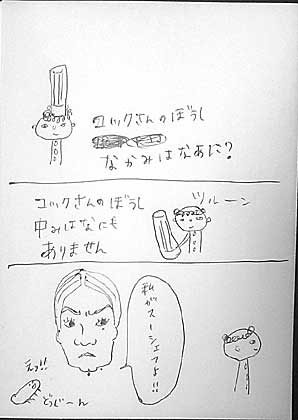 コックさんのぼうし
なかみはなあに?
コックさんのぼうし
中みはなにも
ありません
ツルーン
私がスーシェフよ!!
えっ!!
どぅじーん